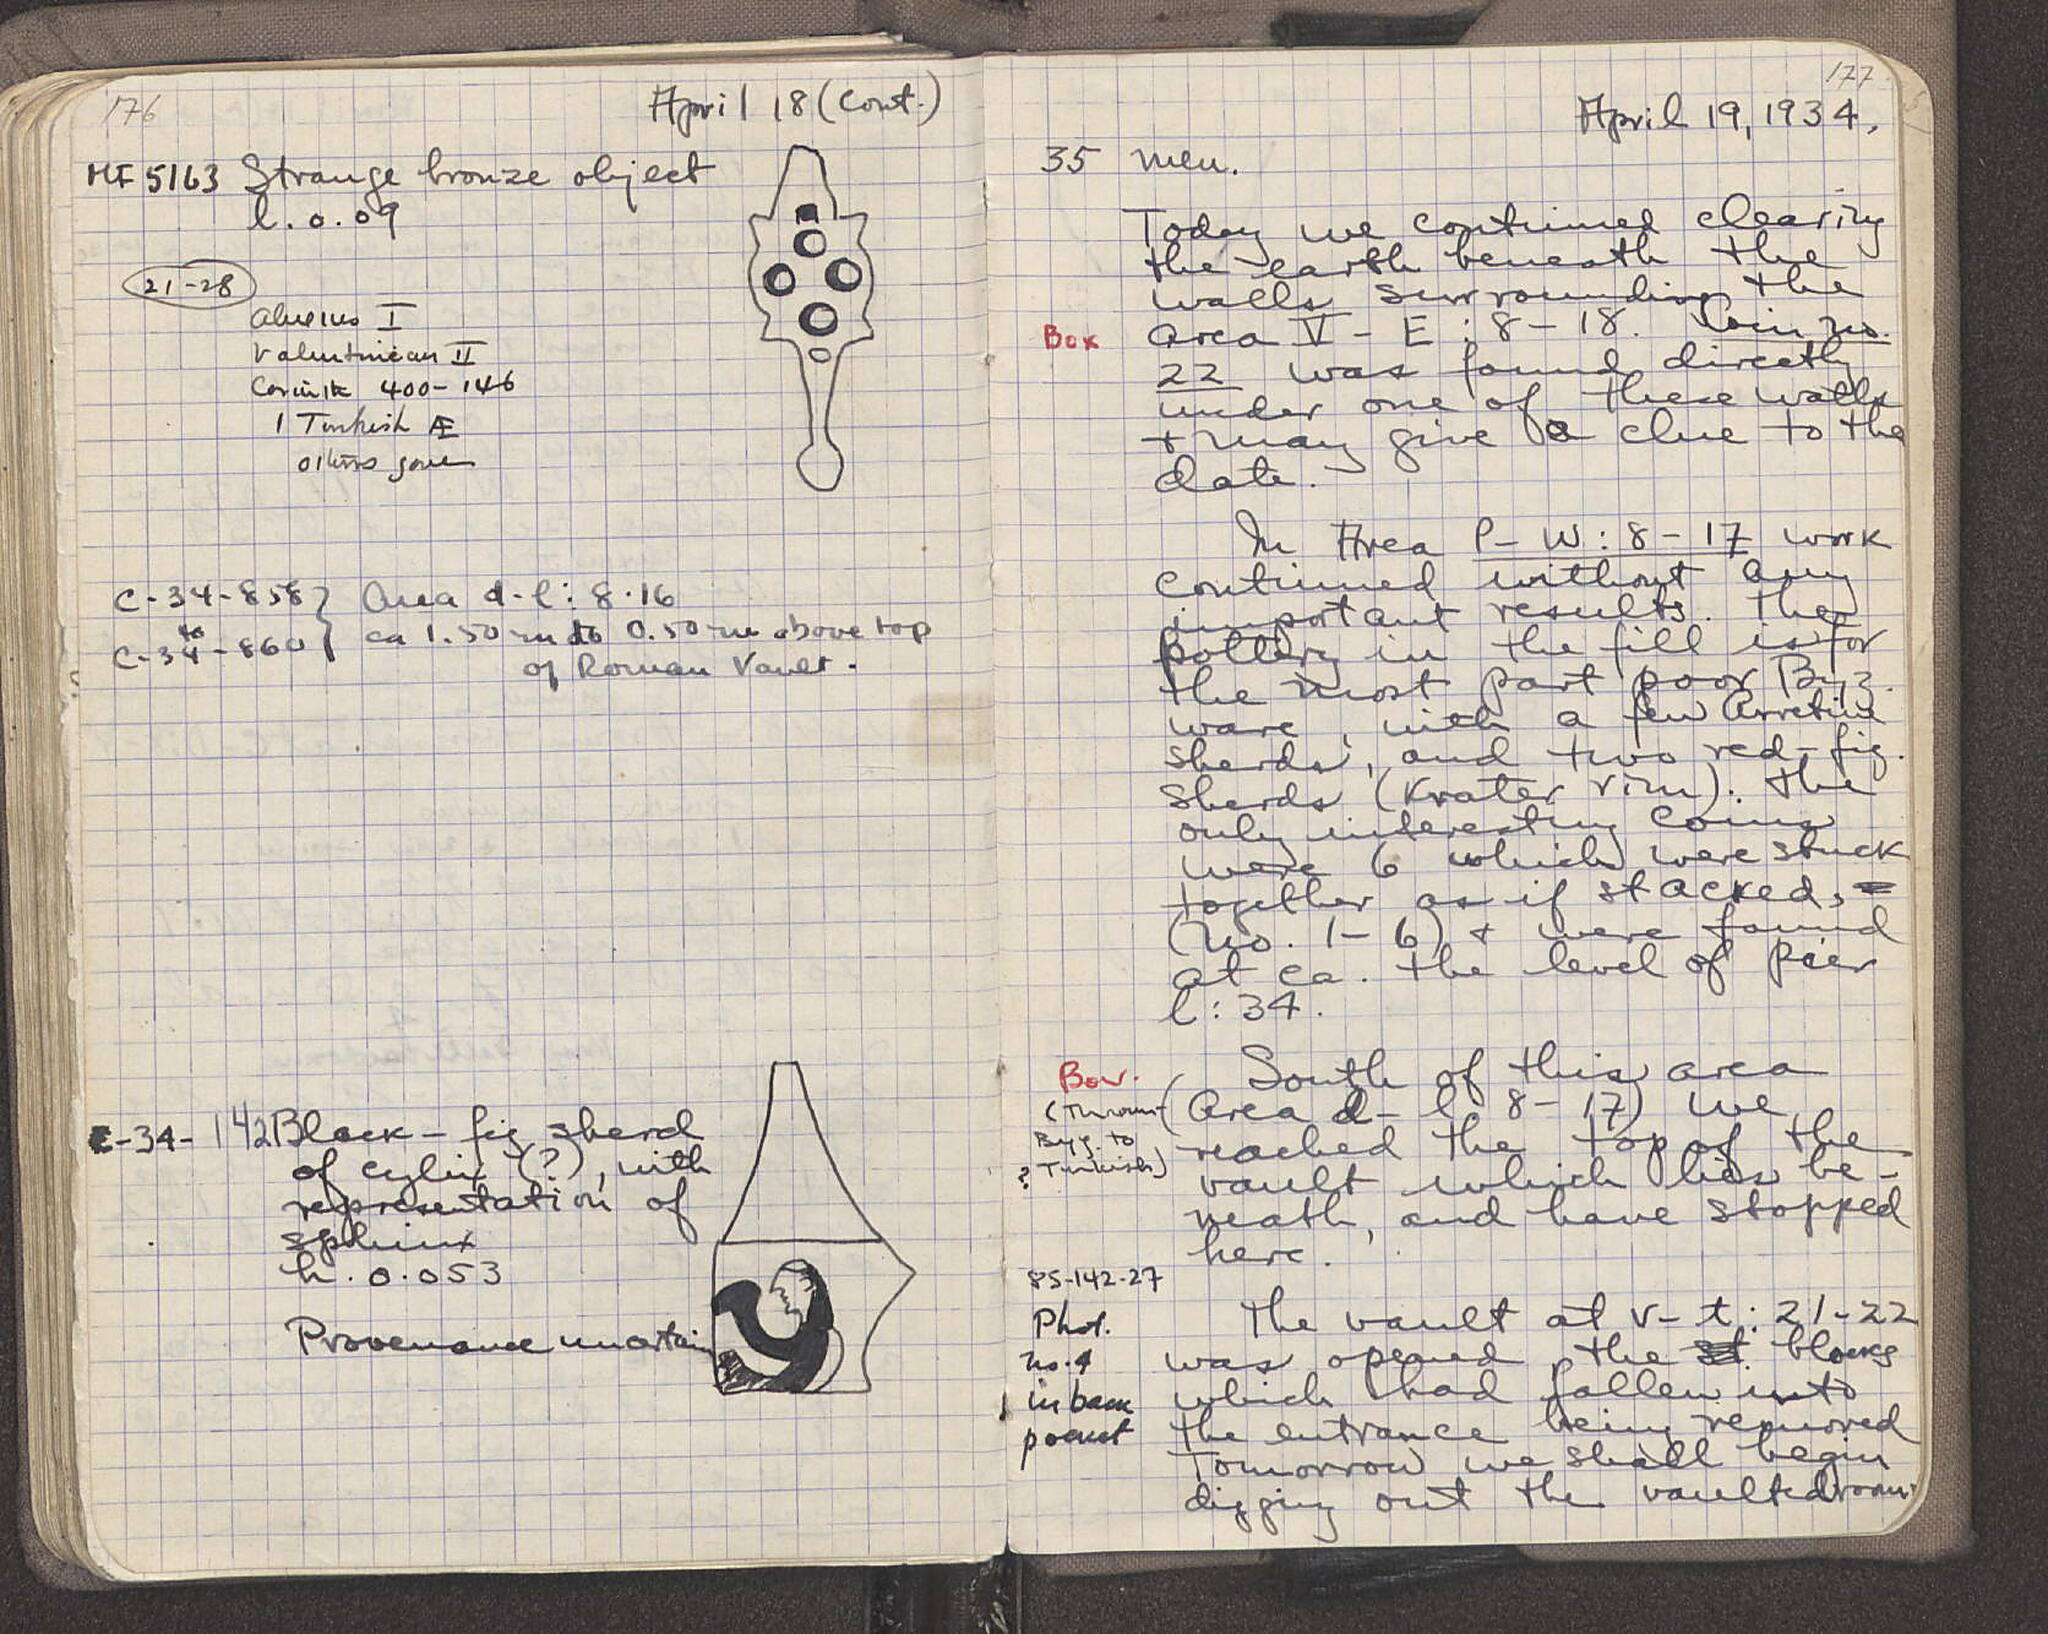 176
April 18 (Cont.)
MF 5163 Strange bronze object
l. 0.09
21-28
Alexius I
Valentinian II
Corinth 400-146
1 Turkish Æ
others gone
C-34-858 } Area d-l: 8-16
to
C-34-860 ca 1.50 m to 0.50 m above top
of Roman Vault.
C-34-142 Black-fig sherd
of cylix (?), with
representation of
sphinx
h. 0.053
Provenance uncertain
177
April 19, 1934.
35 men.
Today we continued clearing
the earth beneath the
walls surrounding the
Box area V-E: 8-18. Coin no.
22 was found directly
under one of these walls
+ may give a clue to the
date.
In Area P-W: 8-17 work
continued without any
important results. The
pottery in the fill is for
the most part poor Byz.
ware, with a few Arretine
sherds, and two red-fig.
sherds (krater rim). The
only interesting coins
were 6 which were stuck
together as if stacked,
(no. 1-6) + were found
at ca. the level of Pier
l: 34.
Box. South of this area
(Thrown (Area d-l 8-17) we
Byz. to reached the top of the
? Turkish) vault which lies be-
neath, and have stopped
here.
85-142-27
Phot. The vault at v-t: 21-22
no. 4 was opened, the blocks
in back which had fallen into
pocket the entrance being removed
Tomorrow we shall begin
digging out the vaulted room.